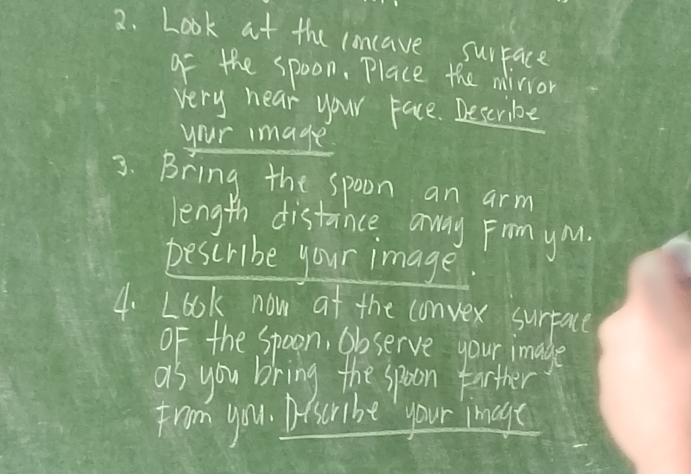 2. Look at the concave surface
of the spoon. Place the mirror
very near your face. Describe
your image.
3. Bring the spoon an arm
length distance away from you.
Describe your image.
4. Look now at the convex surface
OF the spoon. Observe your image
as you bring the spoon farther
from you. Describe your image